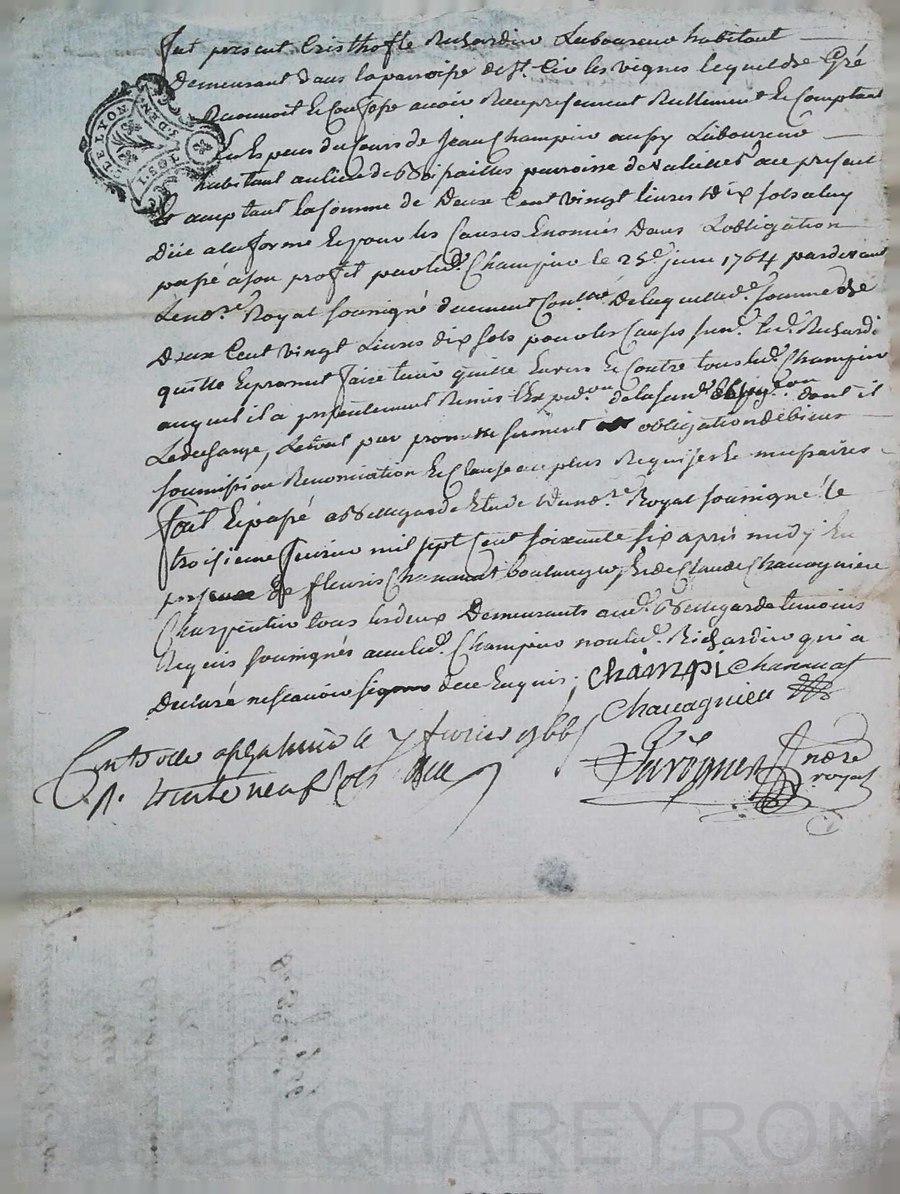 fut present Cristhofle Richardier Laboureur habitant
demeurant dans la parroisse de St. Cir les vignes lequel de gré
Reconnoit et Confesse avoir Reçu presentement Reellement et Comptant
des deniers de Jean Champier aussy Laboureur
habitant au lieu de parroisse de ace present
et acceptant la somme de Deux Cent vingt livres dix sols a luy
düe a la forme et pour les Causes Enoncés Dans L'obligation
passé a son profit par led. Champier le 25e. juin 1764 pardevant
Le nore. Royal soussigné duement Contlé. De laquelle d. somme de
Deux Cent vingt Livres dix sols pour les Causes susd. led. Richardier
quitte et promet faire tenir quitte Envers et Contre tous led. Champier
auquel il a presentement Remis l'Expedon de la susd. obligon dont il
Le decharge, Le tout par promesse serment obligation de biens
soumission Renonciation et Clause au plus Requises et necessaires
fait et passé a Bellegarde Etude du nore. Royal soussigné le
troisieme fevrier mil sept Cent soixante six après midy En
presence de fleuris Chanavat boulanger et de Claude Chavagnieu
Charpentier tous les deux Demeurants aud. Bellegarde temoins
Requis soussignés avec led. Champier non led. Richardier qui a
Declaré ne scavoir signer de ce Enquis ; Champi Chanavat
Chavagnieu
Controllé a St galmier le 7 fevrier 1766
R. trente neuf sols
nore
royal
LE LYON
3 DEN.
1.SOL
Pascal CHAREYRON